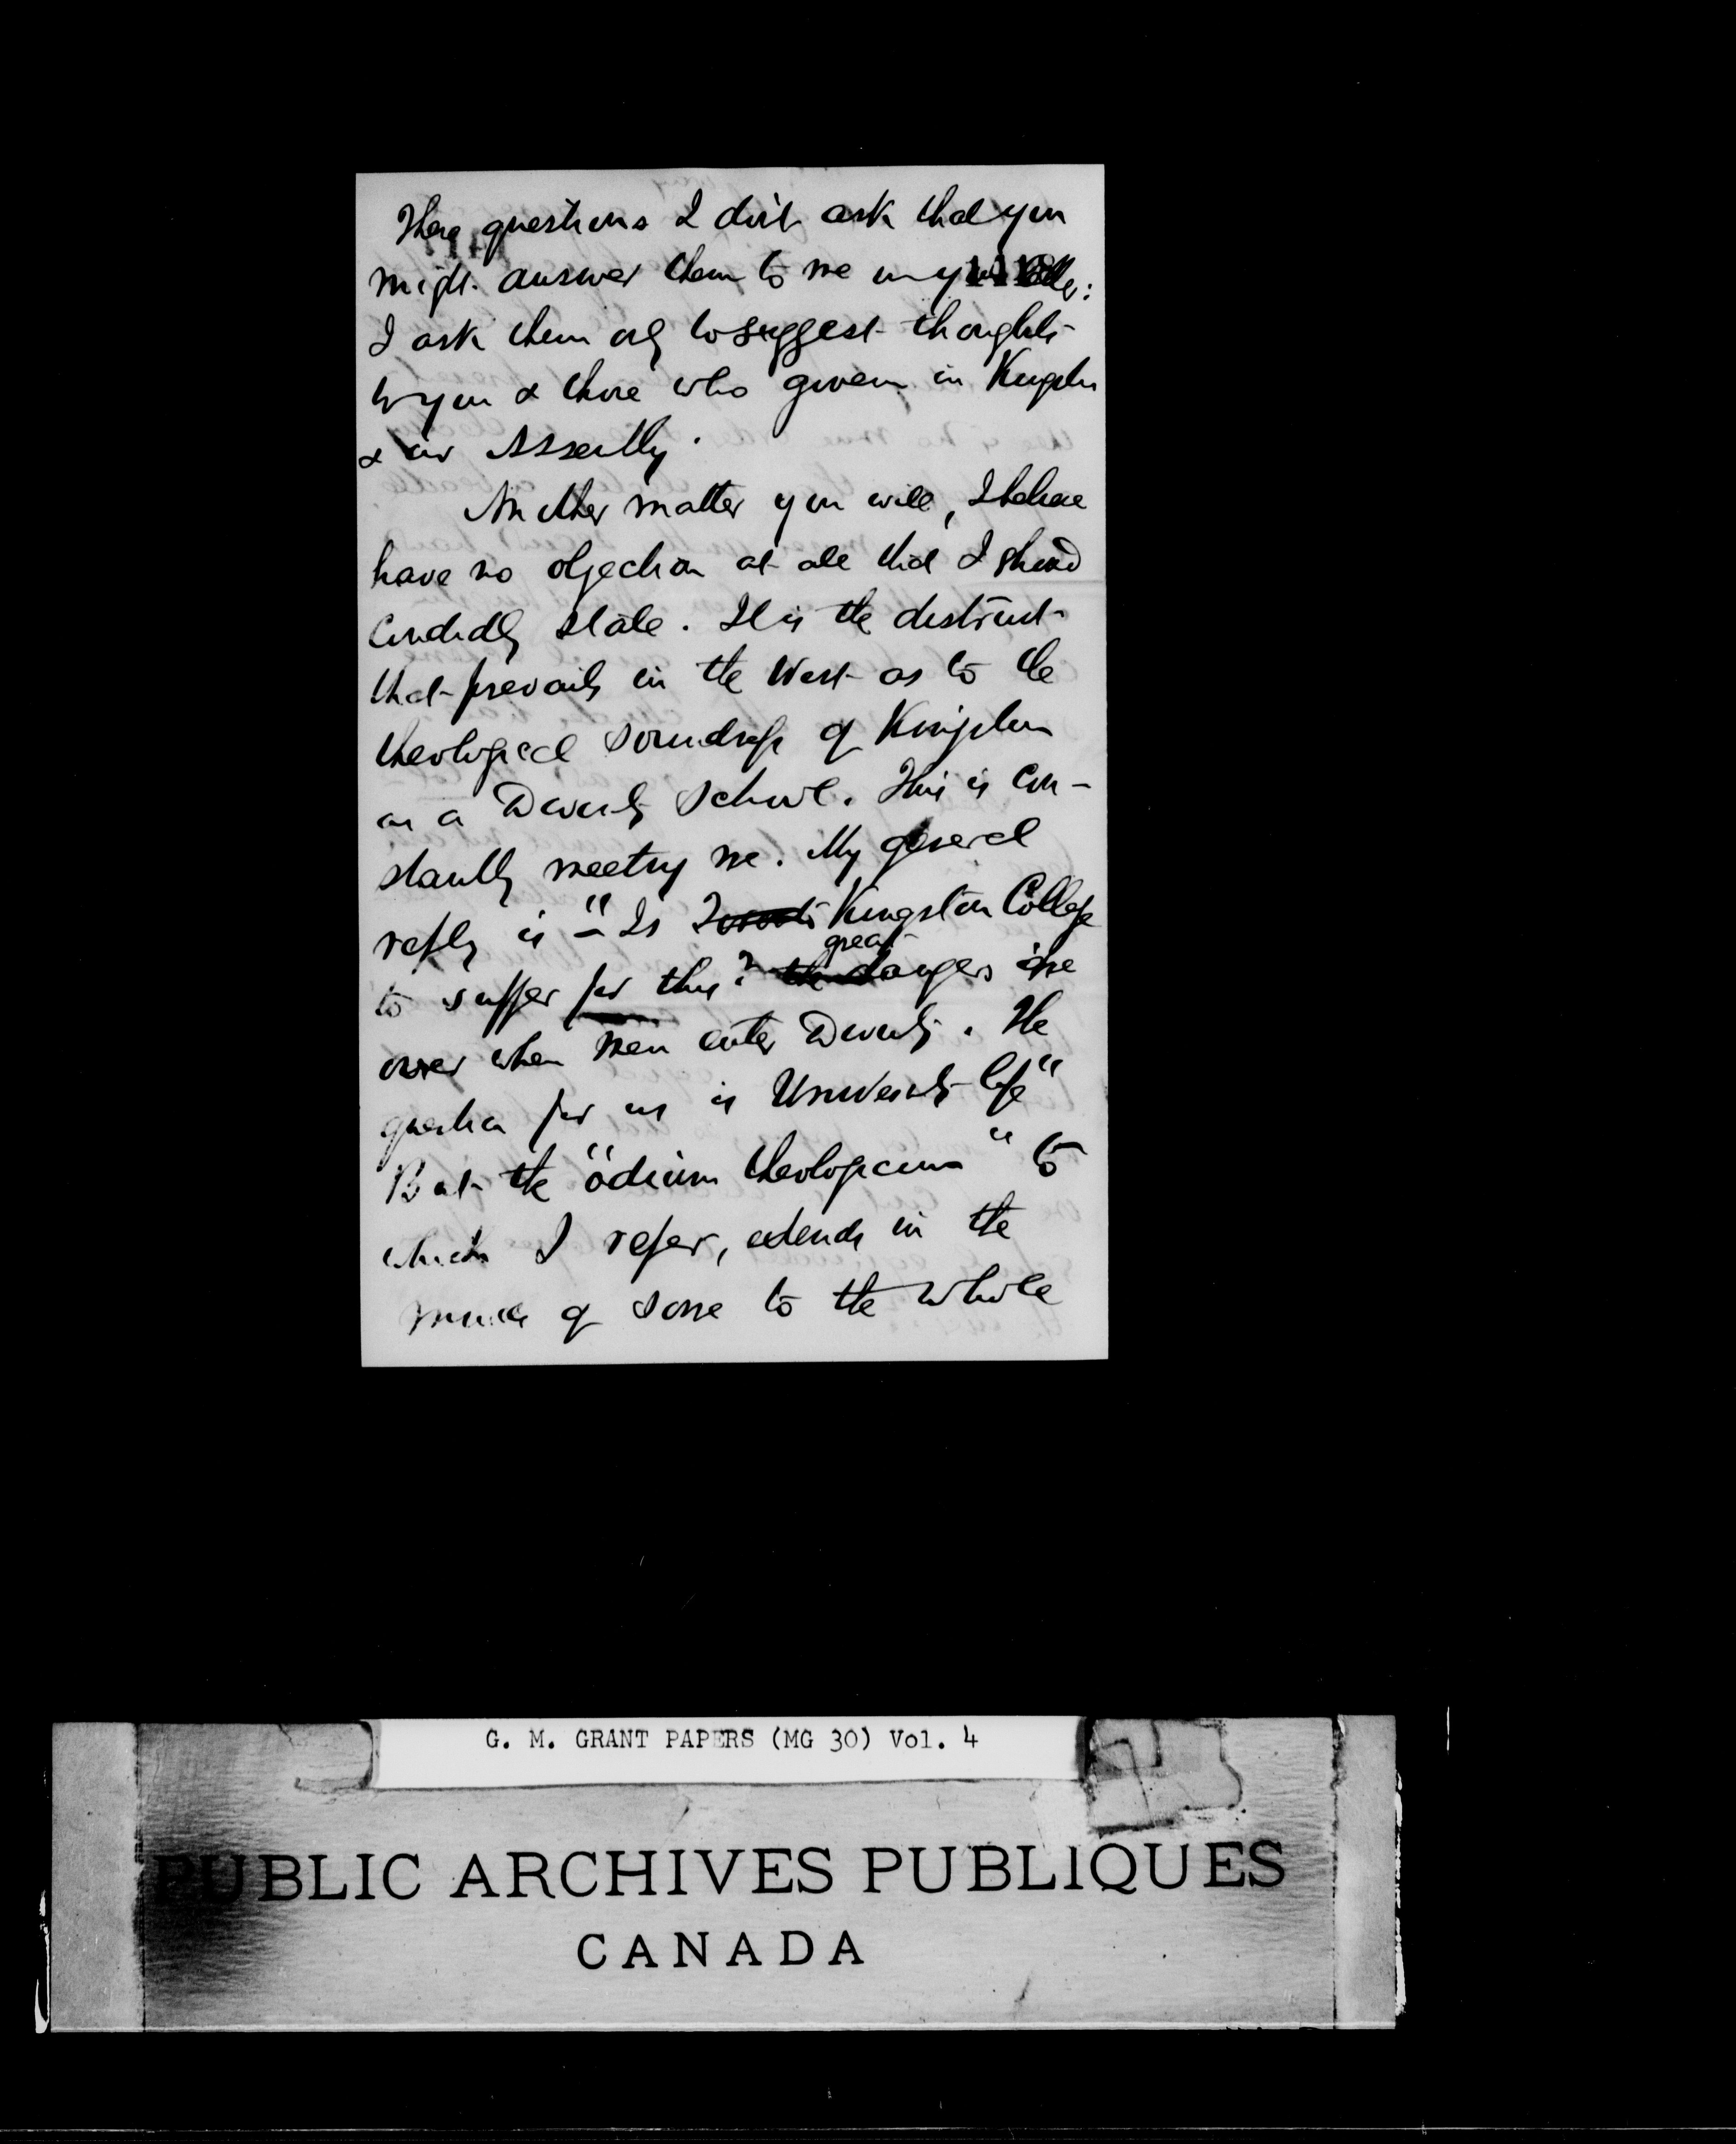 These questions I don't ask that you
might answer them to me in your letter:
I ask them only to suggest thoughts
to you & those who govern in Kingston
& our Assembly.
Another matter you will, I believe
have no objection at all that I should
candidly state. It is the distrust
that prevails in the West as to the
theological soundness of Kingston
as a Divinity School. This is con-
stantly meeting me. My general
reply is - "Is Kingston College
great
to suffer for this? the dangers are
over when men enter Divinity. The
question for us is University life"
But the "odium theologicum" to
which I refer, extends in the
minds of some to the whole
G. M. GRANT PAPERS (MG 30) Vol. 4
PUBLIC ARCHIVES PUBLIQUES
CANADA